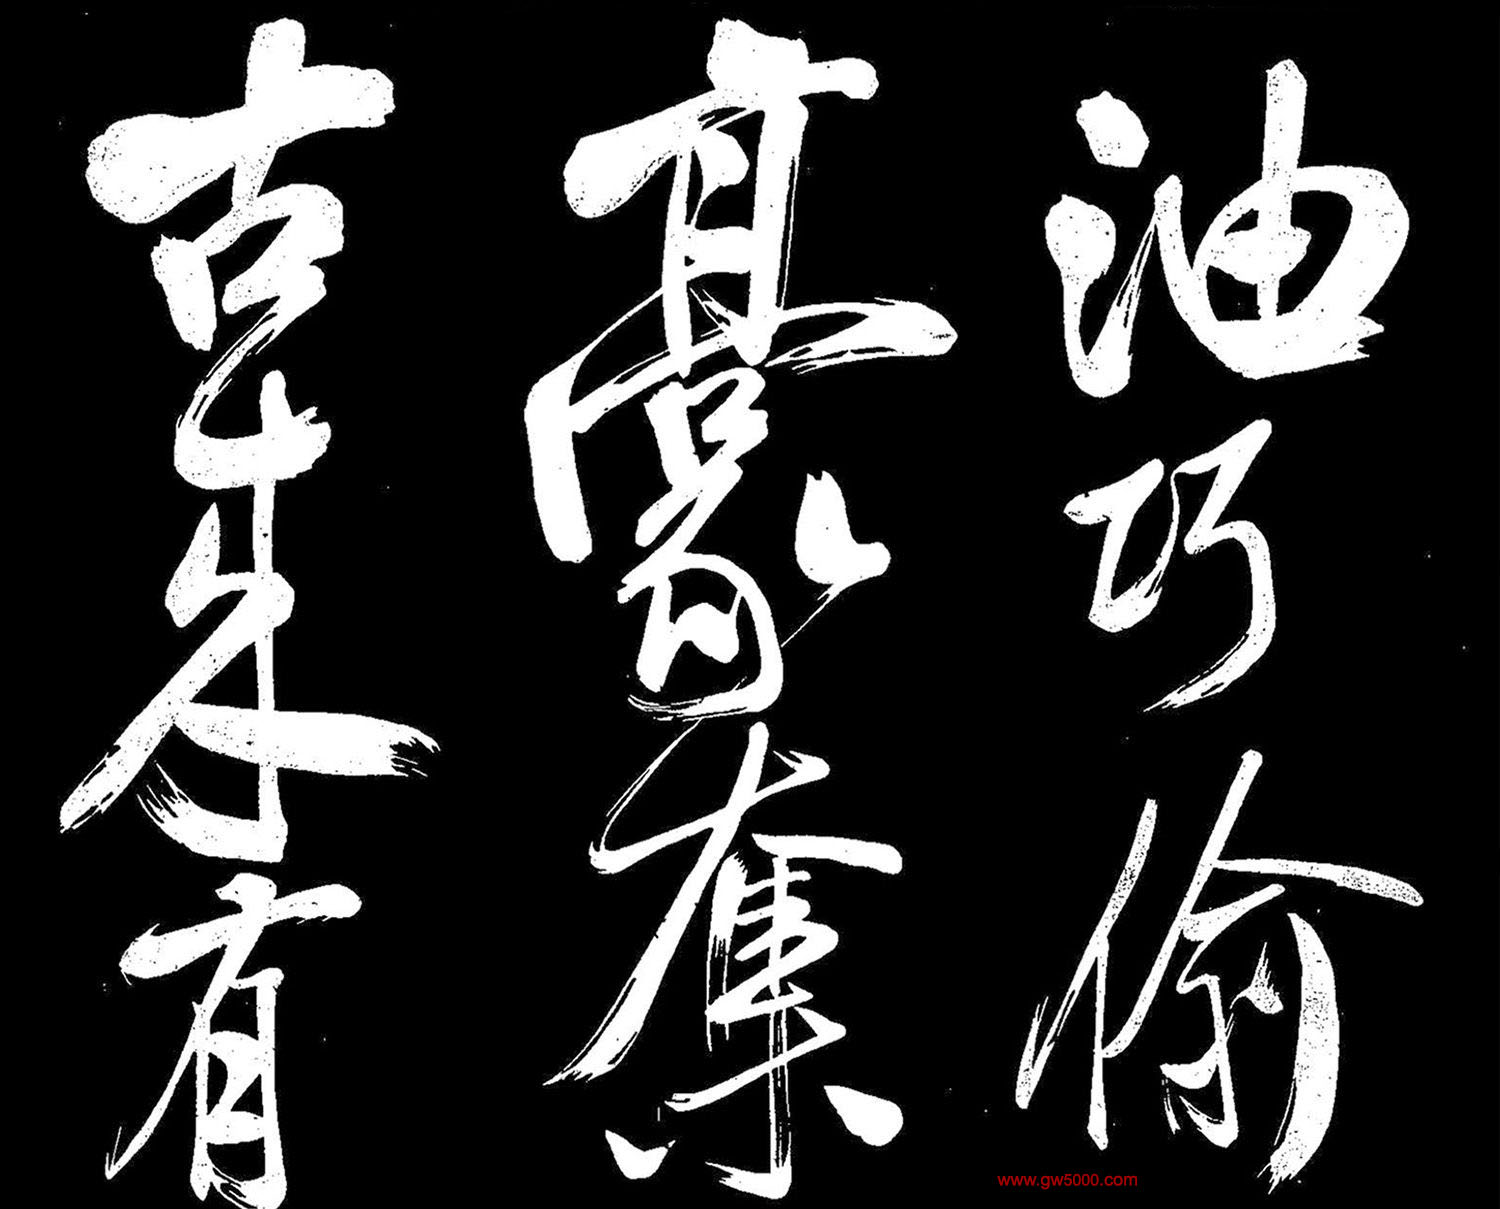 油巧偷
豪奪
古來有
www.gw5000.com